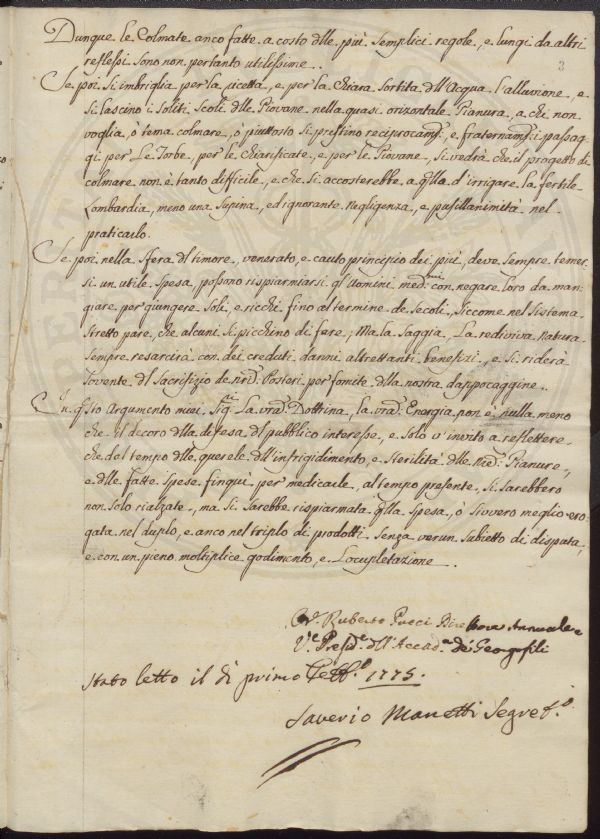 Dunque le Colmate anco fatte a costo dlle più semplici regole, e lungi da altri
riflessi sono non pertanto utilissime..
3
Se poi si imbriglia per la ricetta, e per la chiara sortita dll'Acqua l'alluvione, e
si lascino i soliti scoli dlle Piovane nella quasi orizontale Pianura, a chi non
voglia, ò tema colmare, ò piuttosto si prestino reciprocam:, e fraternam: i passag-
gi per Le Torbe, per le Chiarificate, e per le Piovane, si vedrà che il progetto di
colmare non è tanto difficile, e che si accosterebbe a qlla d'irrigare la fertile
Lombardia, meno una supina, ed ignorante negligenza, e pusillanimità nel
praticarlo.
Se poi nella sfera dl timore, venerato, e cauto principio dei più, deve sempre temer-
si un utile spesa, possono risparmiarsi gl'Uomini med:mi con negare loro da man-
giare per giungere soli, e ricchi fino al termine de Secoli, siccome nel sistema
stretto pare, che alcuni si picchino di fare; Ma la saggia, La rediviva natura
sempre resarcirà con dei creduti danni altrettanti benefizi, e si riderà
sovente dl sacrifizio de nri Posteri per fomite dlla nostra dappocaggine..
In qsto Argumento miei Sig:ri La vra Dottrina, la vra Energia, non è nulla meno
che il decoro dlla difesa dl pubblico interesse, e solo v'invito a reflettere
che del tempo dlle querele dll'infrigidimento, e sterilità dlle nre: Pianure,
e dlle fatte spese finquì per medicarle, al tempo presente, si sarebbero
non solo rialzate, ma si sarebbe risparmiata qlla spesa, ò sivvero meglio ero-
gata nel duplo, e anco nel triplo di prodotti senza verun subietto di disputa,
e con un pieno moltiplice godimento, e Locupletazione..
Cav. Ruberto Pucci Direttore Annuale e
V.e Presid.e dll'Accad.a dé Georgofili
Stato letto il dì primo Febb.o 1775.
Saverio Manetti Segret.o